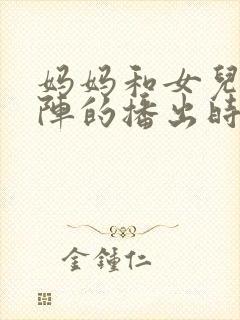 妈妈和女兒
陣的播出時
金鍾仁